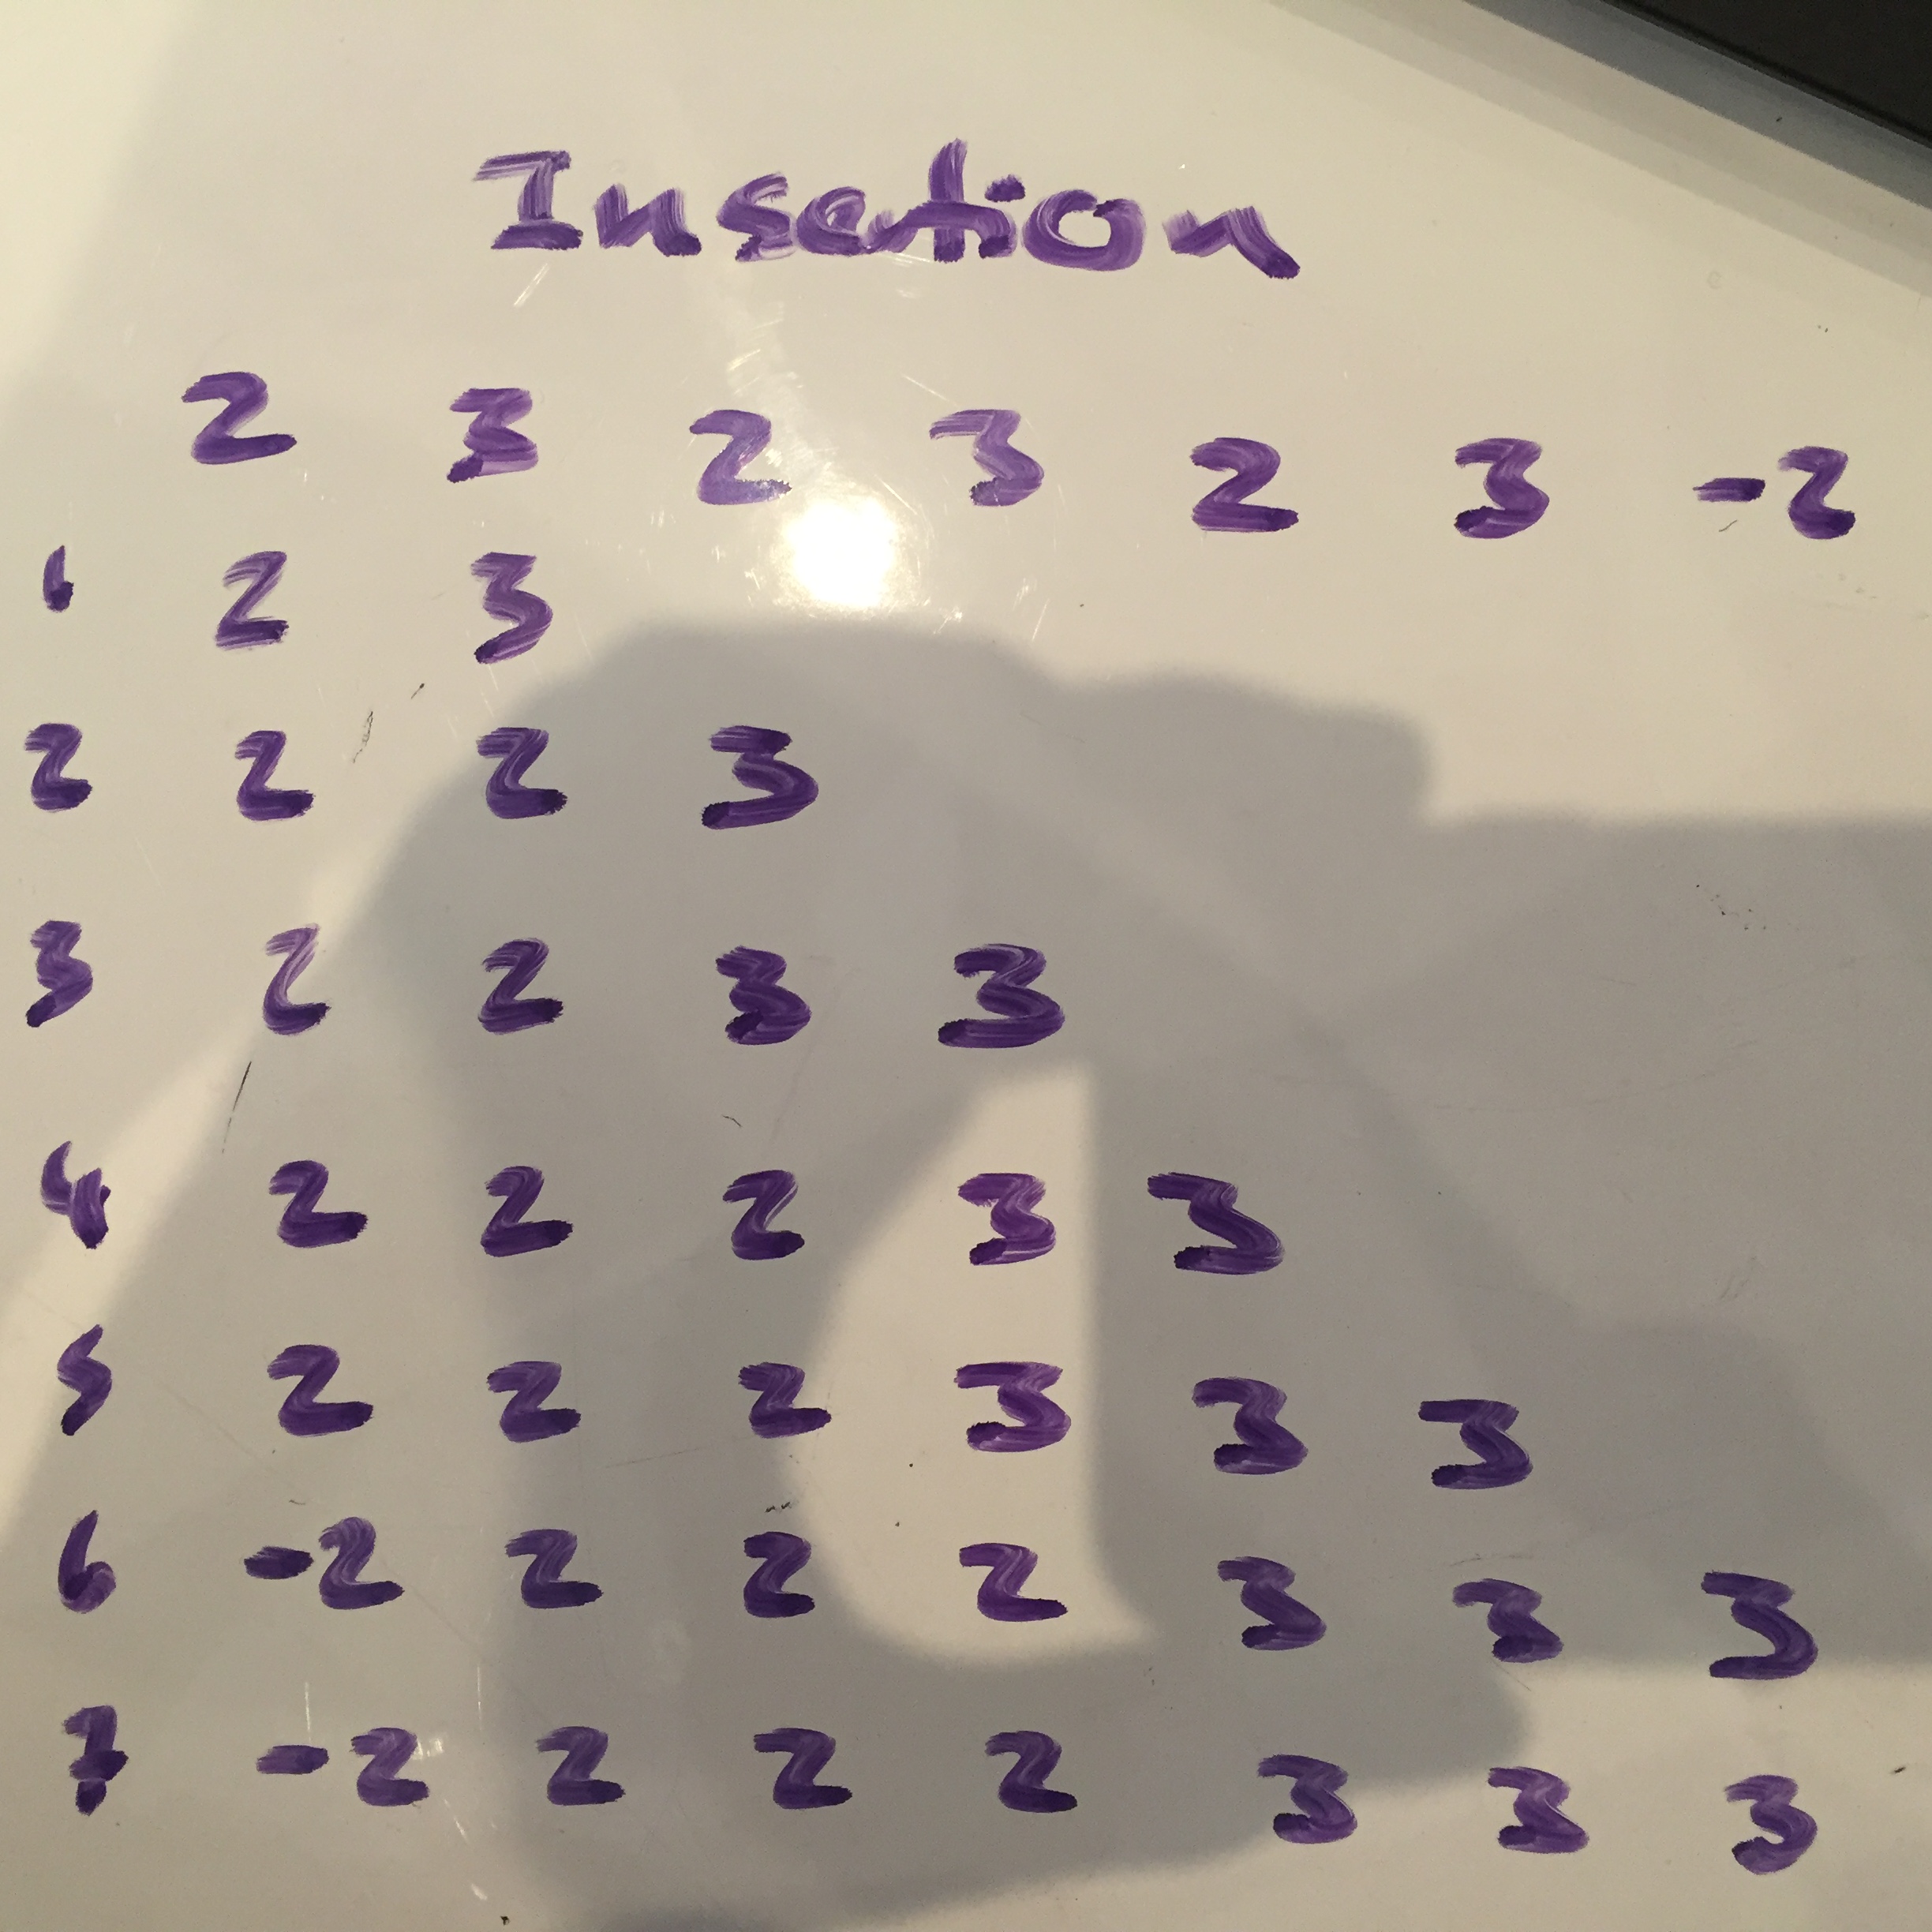 Insertion
2 3 2 3 2 3 -2
1 2 3
2 2 2 3
3 2 2 3 3
4 2 2 2 3 3
5 2 2 2 3 3 3
6 -2 2 2 2 3 3 3
7 -2 2 2 2 3 3 3